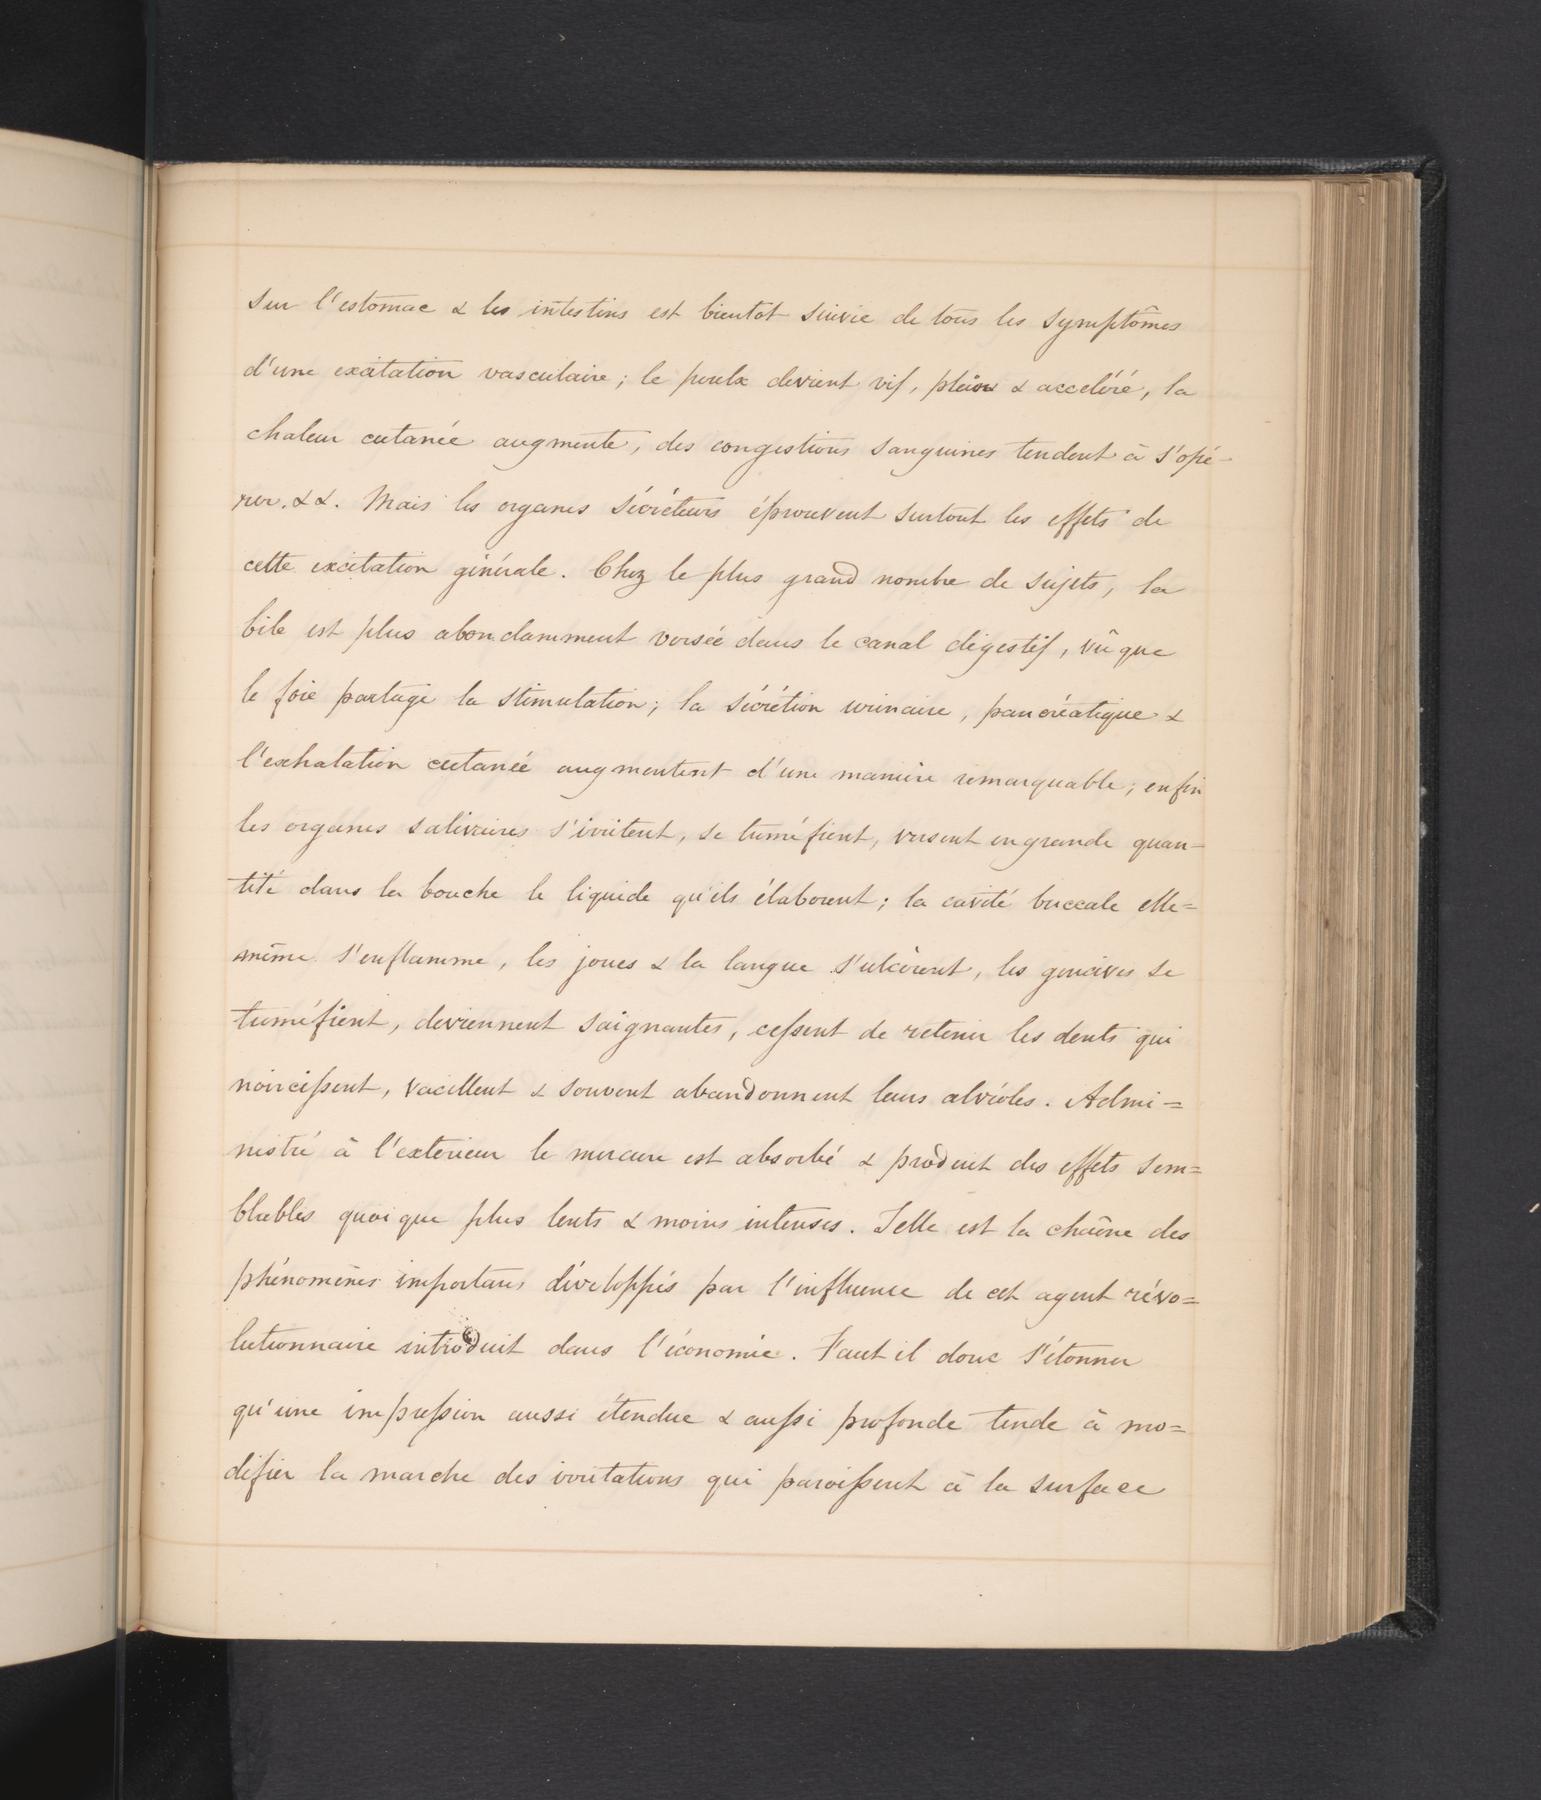 sur l'estomac & les intestins est bientôt suivie de tous les symptômes
d'une excitation vasculaire ; le poulx devient vif, plein & acceléré, la
chaleur cutanée augmente, des congestions sanguines tendent à s'opé-
rer. &&. Mais les organes sécréteurs éprouvent surtout les effets de
cette excitation générale. Chez le plus grand nombre de sujets, la
bile est plus abondamment versée dans le canal digestif, vû que
le foie partage la stimulation ; la sécrétion urinaire, pancréatique &
l'exhalation cutanée augmentent d'une manière remarquable ; enfin
les organes salivaires s'irritent, se tuméfient, versent en grande quan-
tité dans la bouche le liquide qu'ils élaborent ; la cavité buccale elle=
même s'enflamme, les joues & la langue s'ulcèrent, les gencives se
tuméfient, deviennent saignantes, cessent de retenir les dents qui
noircissent, vacillent & souvent abandonnent leurs alvéoles. Admi=
nistré à l'extérieur le mercure est absorbé & produit des effets sem=
blables quoique plus lents & moins intenses. Telle est la chaîne des
phénomènes importans développés par l'influence de cet agent révo=
lutionnaire introduit dans l'économie. Faut il donc s'étonner
qu'une impression aussi étendue & aussi profonde tende à mo=
difier la marche des irritations qui paroissent à la surface